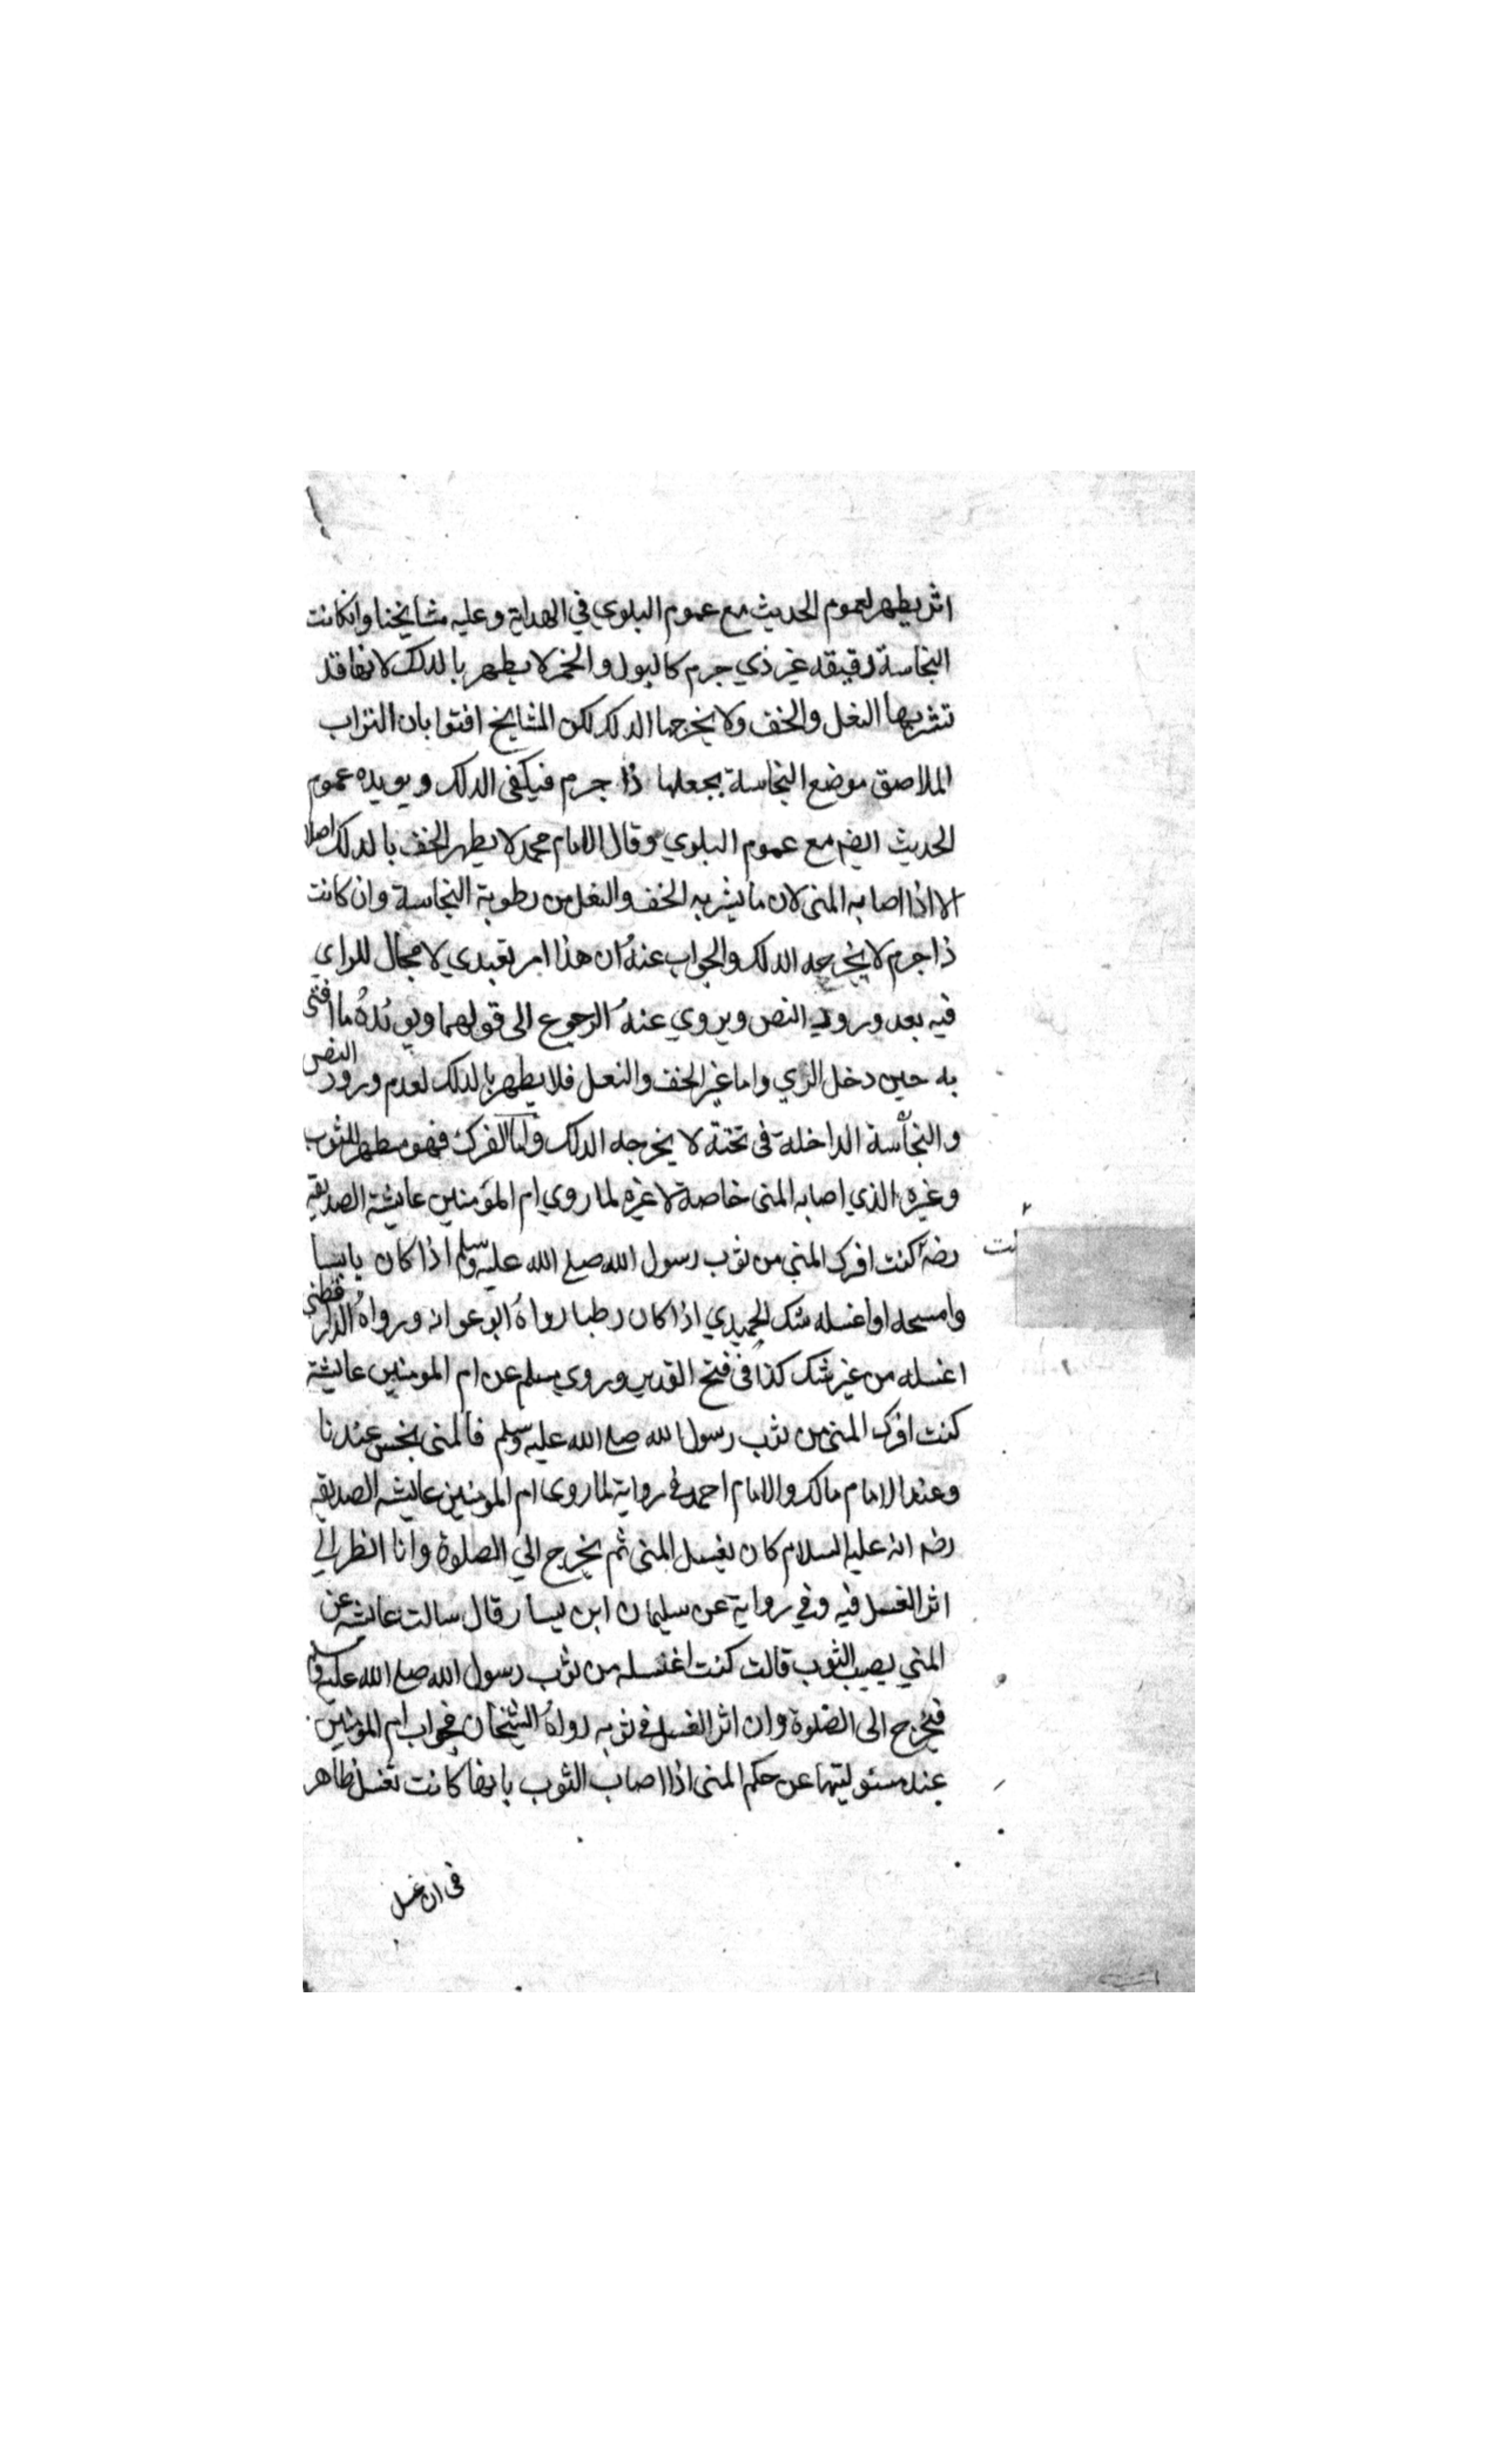 اثر يطهر لعموم الحديث مع عموم البلوي في الهداية وعليه مشايخنا وانكانت
النجاسة رقيقه غير ذي جرم كالبول والخمر لا يطهر بالدلك لانها قد
تشربها النعل والخف ولا يخرجها الدلك لكن المشايخ افتوا بان التراب
الملاصق موضع النجاسة يجعلها ذا جرم فيكفى الدلك ويويده عموم
الحديث ايضم مع عموم البلوي وقال الامام محمد لا يطهر الخف بالدلك اصلا
الا اذا اصابه المنى لان ما يشربه الخف والنعل من رطوبة النجاسة وان كانت
ذا جرم لا يخرجه الدلك والجواب عنه ان هذا امر تعبدي لا مجال للراي
فيه بعد ورود النص ويروي عنه الرجوع الى قولهما ويويده ما افتى
به حين دخل الري واما غير الخف والنعل فلا يطهر بالدلك لعدم ورود النص
والنجاسة الداخلة فى تحته لا يخرجه الدلك واما الفرك فهو مطهر للثوب
وغيره الذي اصابه المنى خاصة لا غيره لما روي ام المؤمنين عايشة الصديقه
رضه كنت افرك المني من ثوب رسول الله صلع الله عليه وسلم اذا كان يابسا
وامسحه او اغسله شك الحميدي اذا كان رطبا رواه ابو عوانه ورواه الدارقطنى
اغسله من غير شك كذا فى فتح القدير وروي مسلم عن ام المومنين عايشة
كنت افرك المنى من ثوب رسول الله صلع الله عليه وسلم فالمنى نجس عندنا
وعند الامام مالك والامام احمد فى رواية لما روى ام المومنين عايشه الصديقه
رضه انه عليه السلام كان يغسل المنى ثم يخرج الي الصلوة وانا انظر الي
اثر الغسل فيه وفي رواية عن سليمان ابن يسار قال سالت عايشه عن
المني يصيب الثوب قالت كنت اغسله من ثوب رسول الله صلع الله عليه وسلم
فيخرج الى الصلوة وان اثر الغسل فى ثوبه رواه الشيخان فجواب ام المؤمنين
عند مسئوليتها عن حكم المنى اذا اصاب الثوب بانها كانت تغسل ظاهر
فى ان غسل